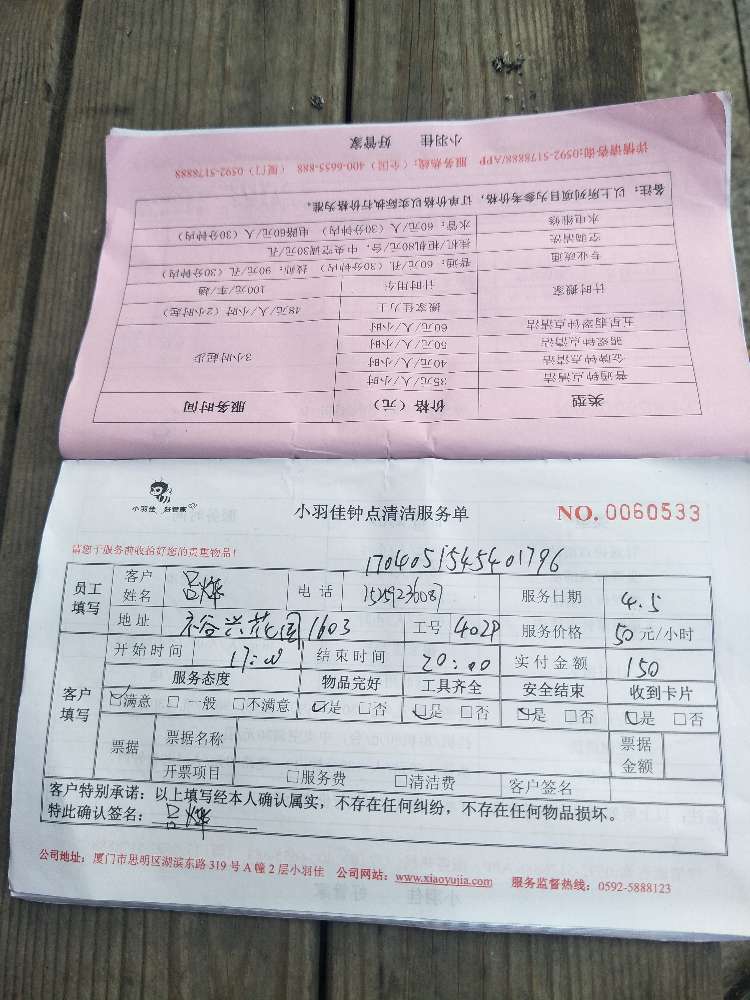 小羽佳 好管家
详情请咨询:0592-5178888/APP 服务热线:(全国)400-6655-888 (厦门)0592-5178888
备注:以上所列项目为参考价格,订单价格以实际执行价格为准。
类型 价格(元) 服务时间
普通钟点清洁 35元/人/小时 3小时起步
金牌钟点清洁 40元/人/小时
50元/人/小时
五星翡翠钟点清洁 60元/人/小时
计时搬家 搬家住力工 48元/人/小时(2小时起)
计时用车 100元/车/趟
专业疏通 普通:60元/孔(30分钟内) 技师:90元/孔(30分钟内)
空调清洗 挂机/柜机80元/台,中央空调30元/孔
水电维修 水管:60元/人(30分钟内) 电路60元/人(30分钟内)
小羽佳 好管家
小羽佳钟点清洁服务单
NO. 0060533
请您于服务前收拾好您的贵重物品!
1704051545401796
员工填写 客户姓名 吕烨 电话 服务日期 4.5
地址 裕兴花园1603 工号 402P 服务价格 50 元/小时
客户填写 开始时间 17:00 结束时间 20:00 实付金额 150
服务态度 物品完好 工具齐全 安全结束 收到卡片
☑满意 □一般 □不满意 ☑是 □否 ☑是 □否 ☑是 □否 ☑是 □否
票据 票据名称 票据金额
开票项目 □服务费 □清洁费 客户签名
客户特别承诺:以上填写经本人确认属实,不存在任何纠纷,不存在任何物品损坏。
特此确认签名: 吕烨
公司地址:厦门市思明区湖滨东路319号A幢2层小羽佳 公司网站:www.xiaoyujia.com 服务监督热线:0592-5888123